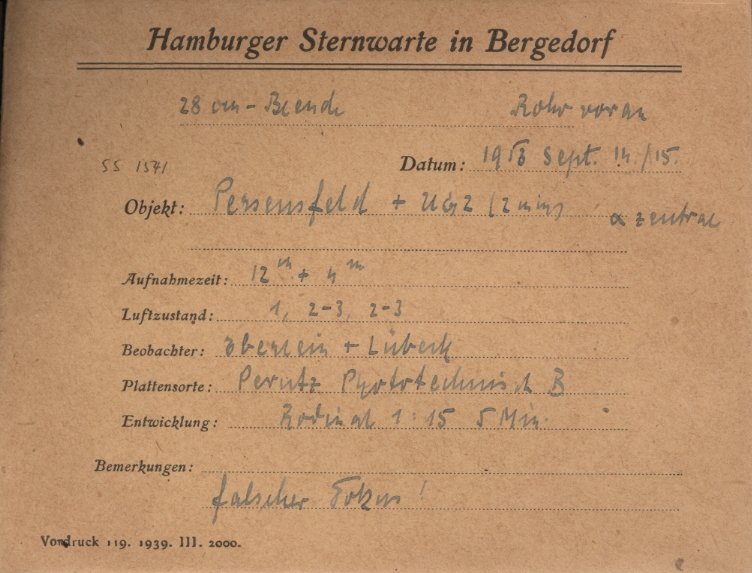 Hamburger Sternwarte in Bergedorf
28 cm - Blende Rohr voran
SS 1571
Datum: Sept. 14./15.
Objekt: Perseusfeld + (2 min) α zentral
Aufnahmezeit: 12ᵐ + 4ᵐ
Luftzustand: 1, 2-3, 2-3
Beobachter: + Lübeck
Plattensorte: Perutz Phototechnisch B
Entwicklung: Rodinal 1:15 5 Min.
Bemerkungen:
falscher Fokus!
Vordruck 119. 1939. III. 2000.